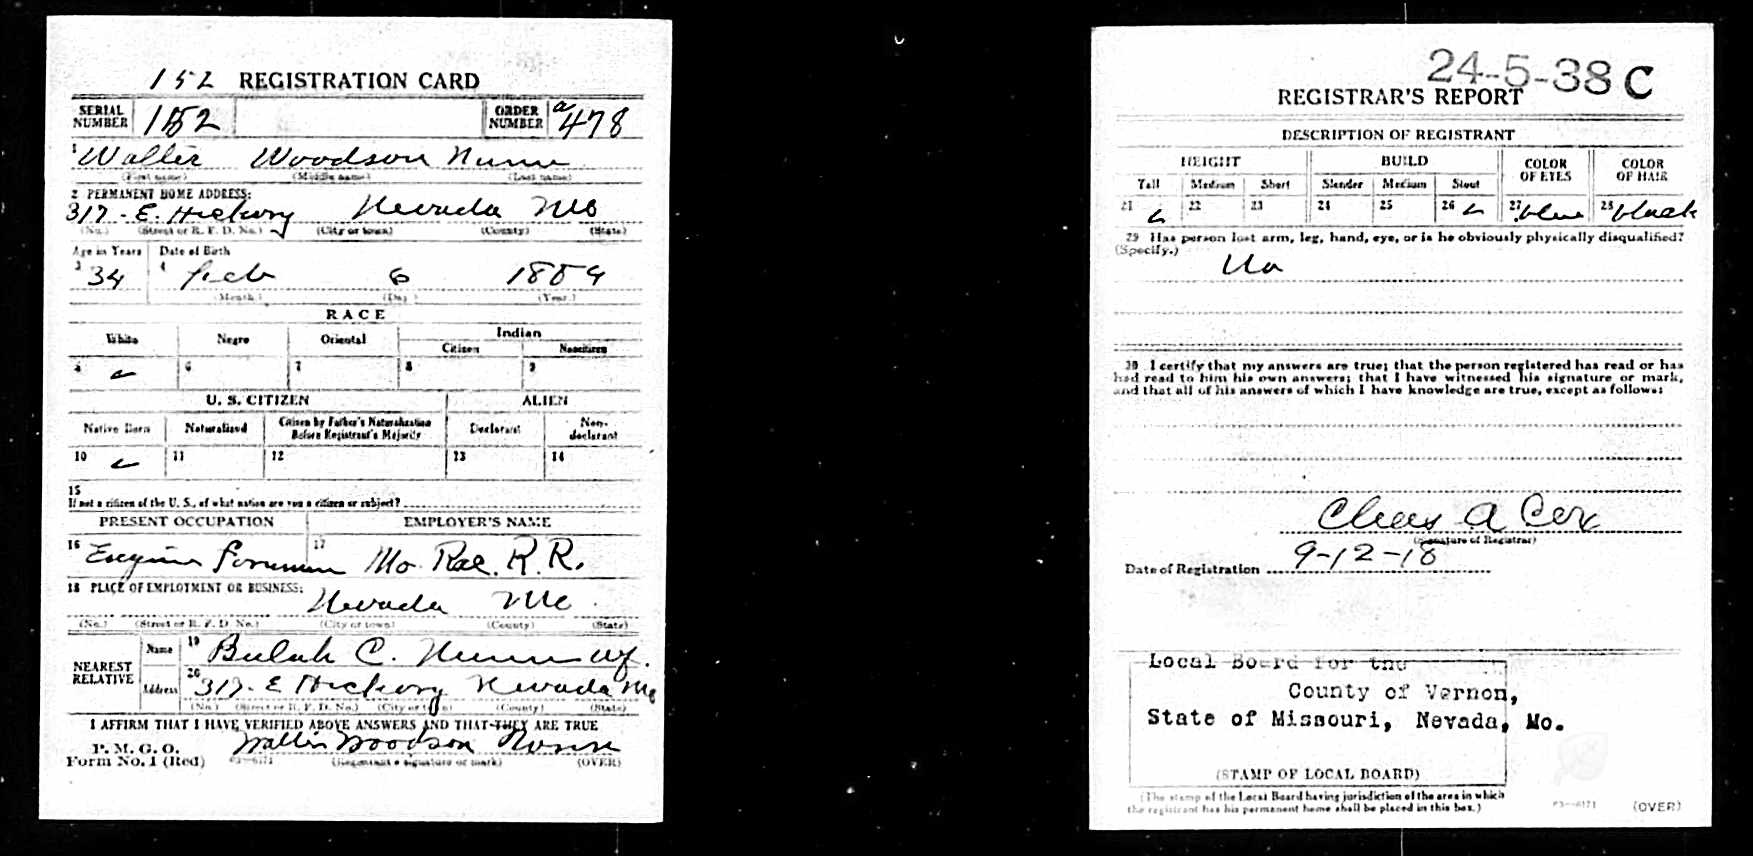 152 REGISTRATION CARD
SERIAL NUMBER 152 ORDER NUMBER a478
1 Walter Woodson Nunn
(First name) (Middle name) (Last name)
2 PERMANENT HOME ADDRESS:
317 - E. Hickory Nevada Mo
(No.) (Street or R. F. D. No.) (City or town) (County) (State)
Age in Years Date of Birth
3 34 4 Feb 6
(Month.) (Day.) (Year.)
RACE
White Negro Oriental Indian
Citizen Noncitizen
5 6 7 8 9
U. S. CITIZEN ALIEN
Native Born Naturalized Citizen by Father's Naturalization Before Registrant's Majority Declarant Non-declarant
10 11 12 13 14
15
If not a citizen of the U. S., of what nation are you a citizen or subject?
PRESENT OCCUPATION EMPLOYER'S NAME
16 Engine Foreman 17 Mo. Pac. R. R.
18 PLACE OF EMPLOYMENT OR BUSINESS:
Nevada Mo.
(No.) (Street or R. F. D. No.) (City or town) (County) (State)
NEAREST RELATIVE
Name 19 Bulah C. Nunn wf.
Address 20 317 - E Hickory Nevada Mo
(No.) (Street or R. F. D. No.) (City or town) (County) (State)
I AFFIRM THAT I HAVE VERIFIED ABOVE ANSWERS AND THAT THEY ARE TRUE
P. M. G. O.
Form No. 1 (Red) 03—6171 Walter Woodson Nunn
(Registrant's signature or mark) (OVER)
24-5-38 C
REGISTRAR'S REPORT
DESCRIPTION OF REGISTRANT
HEIGHT BUILD COLOR OF EYES COLOR OF HAIR
Tall Medium Short Slender Medium Stout
21 22 23 24 25 26 27 blue 28 black
29 Has person lost arm, leg, hand, eye, or is he obviously physically disqualified?
(Specify.) No
30 I certify that my answers are true; that the person registered has read or has
had read to him his own answers; that I have witnessed his signature or mark,
and that all of his answers of which I have knowledge are true, except as follows:
Chas A Cox
(Signature of Registrar)
Date of Registration 9-12-18
Local Board for the
County of Vernon,
State of Missouri, Nevada, Mo.
(STAMP OF LOCAL BOARD)
(The stamp of the Local Board having jurisdiction of the area in which
the registrant has his permanent home shall be placed in this box.)
03—6171 (OVER)